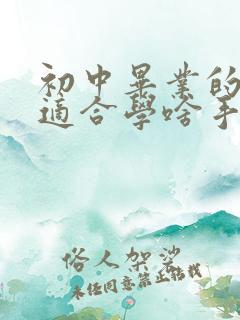 初中畢業的
適合學啥手
俗人架娑
未任同意禁止轉載